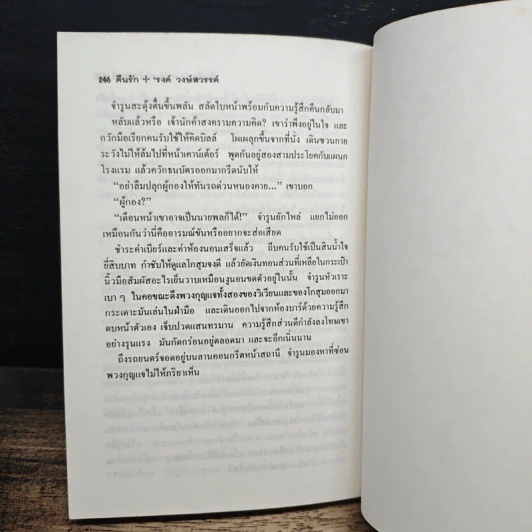 246 คืนรัก + 'รงค์ วงษ์สวรรค์
จำรูนสะดุ้งตื่นขึ้นพลัน สลัดใบหน้าพร้อมกับความรู้สึกคืนกลับมา
หลับแล้วหรือ เจ้านักค้าสงความความคิด? เขารำพึงอยู่ในใจ และ
กวักมือเรียกคนรับใช้ให้คิดบิลล์ โผเผลุกขึ้นจากที่นั่ง เดินชวนกาย
ระวังไม่ให้ล้มไปที่หน้าเคาน์เต้อร์ พูดกันอยู่สองสามประโยคกับแผนก
โรงแรม แล้วควักธนบัตรออกมากรีดนับให้
“อย่าลืมปลุกผู้กองให้ทันรถด่วนหนองคาย...” เขาบอก
“ผู้กอง?”
“เดือนหน้าเขาอาจเป็นนายพลก็ได้!” จำรูนยักไหล่ แยกไม่ออก
เหมือนกันว่านี่คืออารมณ์ขันหรืออยากจะส่อเสียด
ชำระค่าเบียร์และค่าห้องนอนเสร็จแล้ว ถีบคนรับใช้เป็นสินน้ำใจ
ยี่สิบบาท กำชับให้ดูแลโกสุมจงดี แล้วยัดเงินทอนส่วนที่เหลือในกระเป๋า
นิ้วมือสัมผัสอะไรเย็นวาบเหมือนงูนอนขดตัวอยู่ในนั้น จำรูนหัวเราะ
เบา ๆ ในคอขณะดึงพวงกุญแจทั้งสองของวิเวียนและของโกสุมออกมา
กระเดาะมันเล่นในฝ่ามือ และเดินออกไปจากห้องบาร์ด้วยความรู้สึก
ตบหน้าตัวเอง เจ็บปวดแสนทรมาน ความรู้สึกส่วนดีกำลังลงโทษเขา
อย่างรุนแรง มันกัดกร่อนอยู่ตลอดมา และจะอีกเนิ่นนาน
ถึงรถยนตร์จอดอยู่บนลานคอนกรีตหน้าสถานี จำรูนมองหาที่ซ่อน
พวงกุญแจไม่ให้ภริยาเห็น